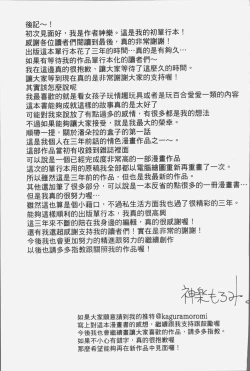 後記～！
初次見面好，我是作者神樂。這是我的初單行本！
感謝各位讀者們閱讀到最後，真的非常謝謝！
出版這本單行本花了三年的時間…真的是有夠久…
如果有等待我的作品單行本化的讀者們～
我在這邊真的很抱歉，讓大家等待了這麼久的時間。
讓大家等到現在真的是非常謝謝大家的支持喔！
其實該怎麼說呢
我最喜歡的就是看女孩子玩情趣玩具或者是玩百合愛愛一類的內容
這本書能夠成就這樣的故事真的是太好了
可能對我來說放了有點過多的感情，有很多都是我的想法
不過如果能夠讓大家接受，就是我最大的榮幸。
順帶一提，關於潘朵拉的盒子的第一話
這是我個人在三年前話的情色漫畫作品之一～。
這部作品當初有收錄到雜誌裡面
可以說是一個已經完成度非常高的一部漫畫作品
這次的單行本用的原稿我全部都以電腦繪圖重新再重畫了一次。
所以雖然這是三年前的作品，但也是我最新的作品。
其他還加筆了很多部分，可以說是一本反省的點很多的一冊漫畫書…
但是我真的很努力喔…
雖然這也算是個小藉口，不過私生活方面我也過了很精彩的三年。
能夠這樣順利的出版單行本，我真的很高興
這三年來不斷的陪在我身邊的編輯，真的很感謝喔！
還有我還超感謝支持我的讀者們！實在是非常的謝謝！
今後我也會更加努力的精進跟努力的繼續創作
以後也請多多指教跟關照我的作品喔！
神楽もろみ
如果大家願意請到我的推特@kaguramoromi
寫上對這本漫畫書的感想，繼續跟我支持跟鼓勵喔
今後我也會繼續畫讓大家喜歡的作品，請多多指教。
如果不小心有錯字，真的很抱歉喔
那麼希望能夠再在新作品中見面喔！